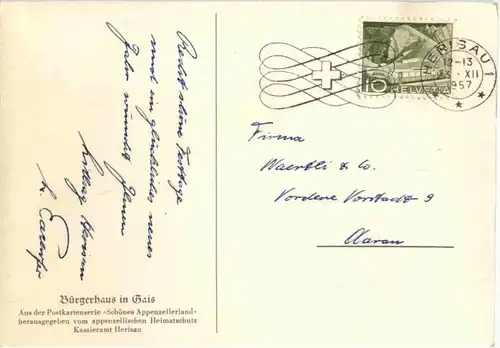 Recht schöne Festtage
und ein glückliches neues
Jahr wünscht Ihnen
Herisau
Bürgerhaus in Gais
Aus der Postkartenserie «Schönes Appenzellerland»
herausgegeben vom appenzellischen Heimatschutz
Kassieramt Herisau
HERISAU 1
12-13
XII
1957
10 HELVETIA
Firma
Waertli & Co.
Vordere Vorstadt 9
Aarau